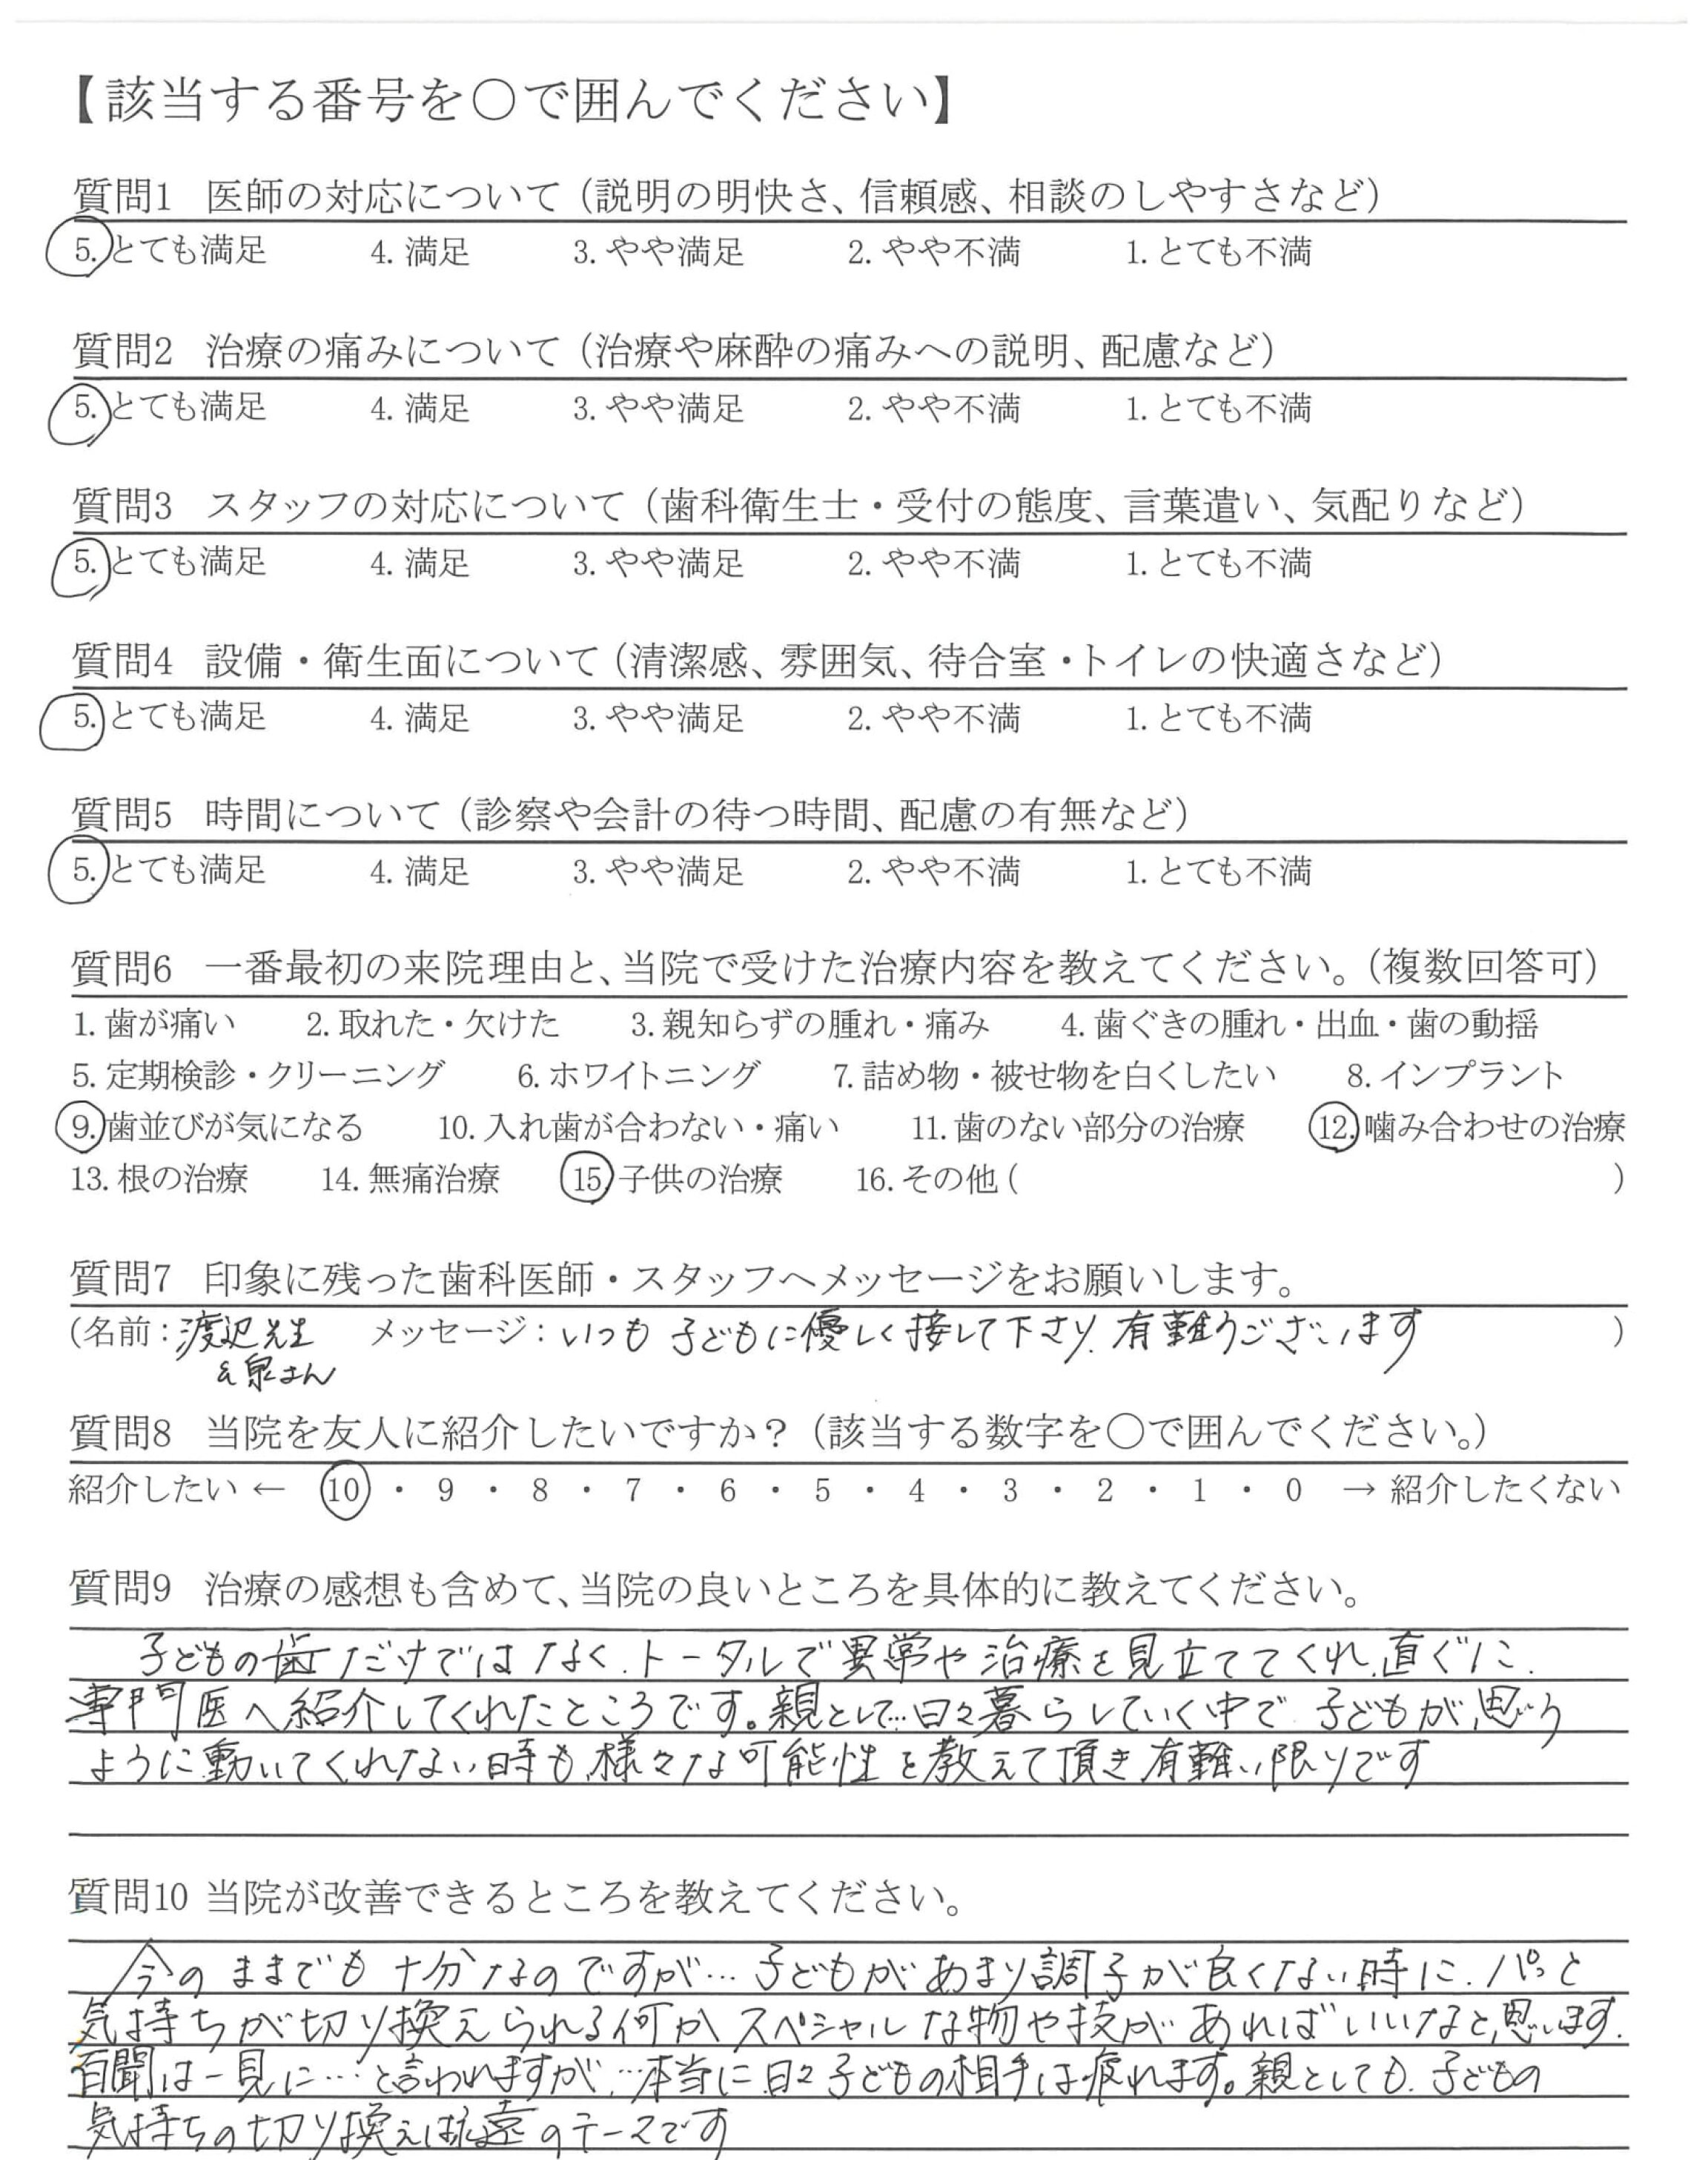 【該当する番号を○で囲んでください】
質問1 医師の対応について（説明の明快さ、信頼感、相談のしやすさなど）
5. とても満足 4. 満足 3. やや満足 2. やや不満 1. とても不満
質問2 治療の痛みについて（治療や麻酔の痛みへの説明、配慮など）
5. とても満足 4. 満足 3. やや満足 2. やや不満 1. とても不満
質問3 スタッフの対応について（歯科衛生士・受付の態度、言葉遣い、気配りなど）
5. とても満足 4. 満足 3. やや満足 2. やや不満 1. とても不満
質問4 設備・衛生面について（清潔感、雰囲気、待合室・トイレの快適さなど）
5. とても満足 4. 満足 3. やや満足 2. やや不満 1. とても不満
質問5 時間について（診察や会計の待つ時間、配慮の有無など）
5. とても満足 4. 満足 3. やや満足 2. やや不満 1. とても不満
質問6 一番最初の来院理由と、当院で受けた治療内容を教えてください。（複数回答可）
1. 歯が痛い 2. 取れた・欠けた 3. 親知らずの腫れ・痛み 4. 歯ぐきの腫れ・出血・歯の動揺
5. 定期検診・クリーニング 6. ホワイトニング 7. 詰め物・被せ物を白くしたい 8. インプラント
9. 歯並びが気になる 10. 入れ歯が合わない・痛い 11. 歯のない部分の治療 12. 噛み合わせの治療
13. 根の治療 14. 無痛治療 15. 子供の治療 16. その他（ ）
質問7 印象に残った歯科医師・スタッフへメッセージをお願いします。
（名前：渡辺先生 メッセージ：いつも子どもに優しく接して下さり、有難うございます ）
&泉さん
質問8 当院を友人に紹介したいですか？（該当する数字を○で囲んでください。）
紹介したい ← 10 ・ 9 ・ 8 ・ 7 ・ 6 ・ 5 ・ 4 ・ 3 ・ 2 ・ 1 ・ 0 → 紹介したくない
質問9 治療の感想も含めて、当院の良いところを具体的に教えてください。
子どもの歯だけではなく、トータルで異常や治療を見立ててくれ、直ぐに、
専門医へ紹介してくれたところです。親として…日々暮らしていく中で 子どもが、思う
ように動いてくれない時も、様々な可能性を教えて頂き有難い限りです
質問10 当院が改善できるところを教えてください。
今のままでも十分なのですが… 子どもがあまり調子が良くない時に、パっと
気持ちが切り換えられる何かスペシャルな物や技があればいいなと、思います。
百聞は一見に…と言われますが、…本当に日々子どもの相手は疲れます。親としても、子どもの
気持ちの切り換えは永遠のテーマです